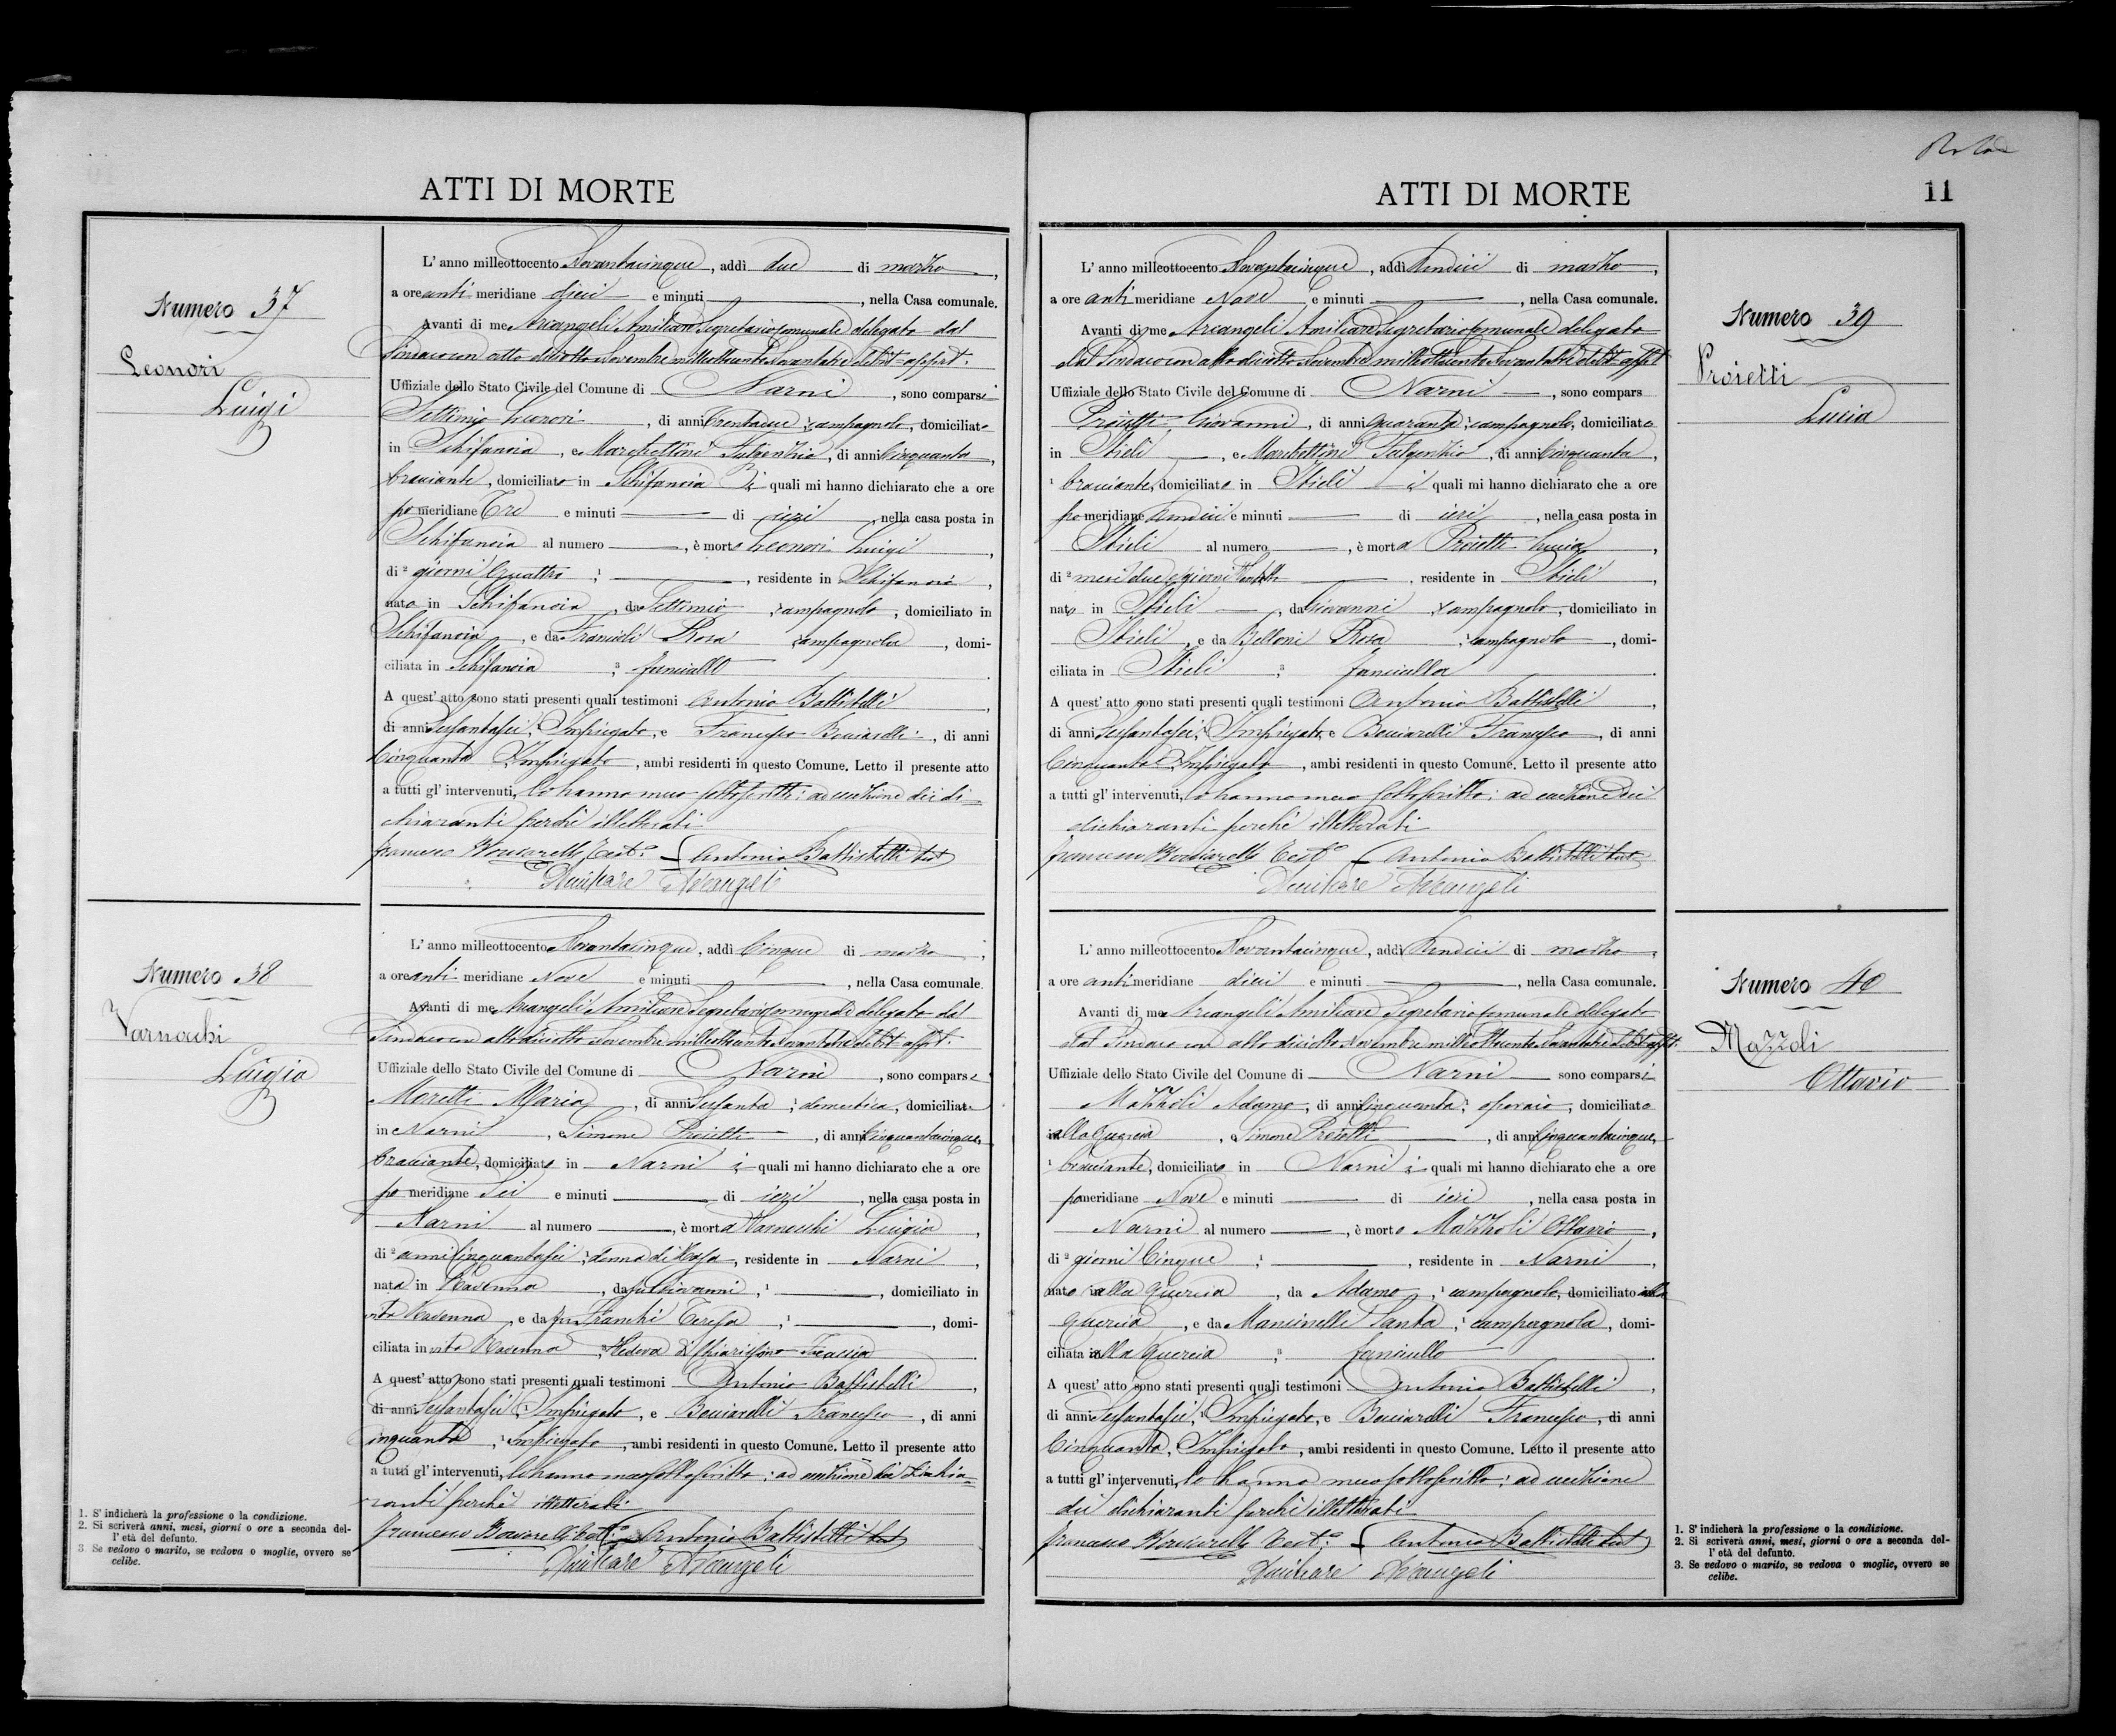 ATTI DI MORTE
Numero 37
Leonori
Luigi
L' anno milleottocento Novantacinque, addì due di marzo,
a ore anti meridiane dieci e minuti, nella Casa comunale.
Avanti di me Arcangeli Amilcare Segretario Comunale delegato dal
Sindaco con atto diciotto Novembre milleottocento Novantatre debit. apprt.
Uffiziale dello Stato Civile del Comune di Narni, sono comparsi
Settimio Leonori, di anni trentadue; campagnolo, domiciliato
in Schifanoia, e Marchettoni Fulgenzio, di anni Cinquanta,
bracciante, domiciliato in Schifanoia i quali mi hanno dichiarato che a ore
po meridiane Tre e minuti di ieri, nella casa posta in
Schifanoia al numero, è morto Leonori Luigi,
di 2 giorni Quattro; 1, residente in Schifanoia,
nato in Schifanoia, da Settimio, campagnolo, domiciliato in
Schifanoia, e da Rosa campagnola, domi-
ciliata in Schifanoia; 3 fanciullo.
A quest' atto sono stati presenti quali testimoni Antonio Battistelli,
di anni Sessantasei, Impiegato, e Francesco Bouciarelli, di anni
Cinquanta, Impiegato, ambi residenti in questo Comune. Letto il presente atto
a tutti gl' intervenuti, lo hanno meco sottoscritto; ad eccezione dei di-
chiaranti perchè illetterati
Francesco Bouciarelli Test.º Antonio Battistelli test
Amilcare Arcangeli
Numero 38
Varnocchi
Luigia
L' anno milleottocento Novantacinque, addì Cinque di marzo,
a ore anti meridiane Nove e minuti, nella Casa comunale.
Avanti di me Arcangeli Amilcare Segretario Comunale delegato dal
Sindaco con atto diciotto Novembre milleottocento Novantatre debit. apprt.
Uffiziale dello Stato Civile del Comune di Narni, sono comparsi
Moretti Maria, di anni Sessanta; domestica, domiciliata
in Narni, e Simone Proietti, di anni Cinquantacinque,
bracciante, domiciliato in Narni i quali mi hanno dichiarato che a ore
po meridiane Sei e minuti di ieri, nella casa posta in
Narni al numero, è morta Varnocchi Luigia,
di 2 anni Cinquantasei; donna di Casa, residente in Narni,
nata in Ravenna, da fu Giovanni, 1, domiciliato in
vita Ravenna, e da fu Franchi Teresa, 1, domi-
ciliata in vita Ravenna, Vedova di
A quest' atto sono stati presenti quali testimoni Antonio Battistelli,
di anni Sessantasei, Impiegato, e Bouciarelli Francesco, di anni
Cinquanta, Impiegato, ambi residenti in questo Comune. Letto il presente atto
a tutti gl' intervenuti, lo hanno meco sottoscritto; ad eccezione dei dichia-
ranti perchè illetterati
Francesco Bouciarelli Test.º Antonio Battistelli test
Amilcare Arcangeli
1. S' indicherà la professione o la condizione.
2. Si scriverà anni, mesi, giorni o ore a seconda del-
l' età del defunto.
3. Se vedovo o marito, se vedova o moglie, ovvero se
celibe.
ATTI DI MORTE
11
Numero 39
Proietti
Lucia
L' anno milleottocento Novantacinque, addì Undici di marzo,
a ore anti meridiane Nove e minuti, nella Casa comunale.
Avanti di me Arcangeli Amilcare Segretario Comunale delegato
dal Sindaco con atto diciotto Novembre milleottocento Novantatre debit. apprt
Uffiziale dello Stato Civile del Comune di Narni, sono compars
Proietti Giovanni, di anni quaranta; campagnolo, domiciliato
in Itieli, e Marchettoni Fulgenzio, di anni Cinquanta,
1 bracciante, domiciliato in Itieli i quali mi hanno dichiarato che a ore
po meridiane Undici e minuti di ieri, nella casa posta in
Itieli al numero, è morta Proietti Lucia,
di 2 mesi due e giorni, residente in Itieli,
nata in Itieli, da Giovanni campagnolo, domiciliato in
Itieli, e da Belloni Rosa; campagnola, domi-
ciliata in Itieli; 3 fanciulla.
A quest' atto sono stati presenti quali testimoni Antonio Battistelli,
di anni Sessantasei, Impiegato, e Bouciarelli Francesco, di anni
Cinquanta, Impiegato, ambi residenti in questo Comune. Letto il presente atto
a tutti gl' intervenuti, lo hanno meco sottoscritto; ad eccezione dei
dichiaranti perchè illetterati
Francesco Bouciarelli Test.º Antonio Battistelli test
Amilcare Arcangeli
Numero 40
Mazzoli
Ottavio
L' anno milleottocento Novantacinque, addì Undici di marzo,
a ore anti meridiane dieci e minuti, nella Casa comunale.
Avanti di me Arcangeli Amilcare Segretario Comunale delegato
dal Sindaco con atto diciotto Novembre milleottocento Novantatre debit. apprt.
Uffiziale dello Stato Civile del Comune di Narni sono comparsi
Mazzoli Adamo, di anni Cinquanta; operaio, domiciliato
alla Quercia, e Simone Proietti, di anni Cinquantacinque,
1 bracciante, domiciliato in Narni i quali mi hanno dichiarato che a ore
pomeridiane Nove e minuti di ieri, nella casa posta in
Narni al numero, è morto Mazzoli Ottavio,
di 2 giorni Cinque; 1, residente in Narni,
nato alla Quercia, da Adamo; 1 campagnolo, domiciliato alla
Quercia, e da Mancinelli Santa, 1 campagnola, domi-
ciliata alla Quercia, 3 fanciullo.
A quest' atto sono stati presenti quali testimoni Antonio Battistelli,
di anni Sessantasei, Impiegato, e Bouciarelli Francesco, di anni
Cinquanta, Impiegato, ambi residenti in questo Comune. Letto il presente atto
a tutti gl' intervenuti, lo hanno meco sottoscritto; ad eccezione
dei dichiaranti perchè illetterati
Francesco Bouciarelli Test.º Antonio Battistelli test
Amilcare Arcangeli
1. S' indicherà la professione o la condizione.
2. Si scriverà anni, mesi, giorni o ore a seconda del-
l' età del defunto.
3. Se vedovo o marito, se vedova o moglie, ovvero se
celibe.